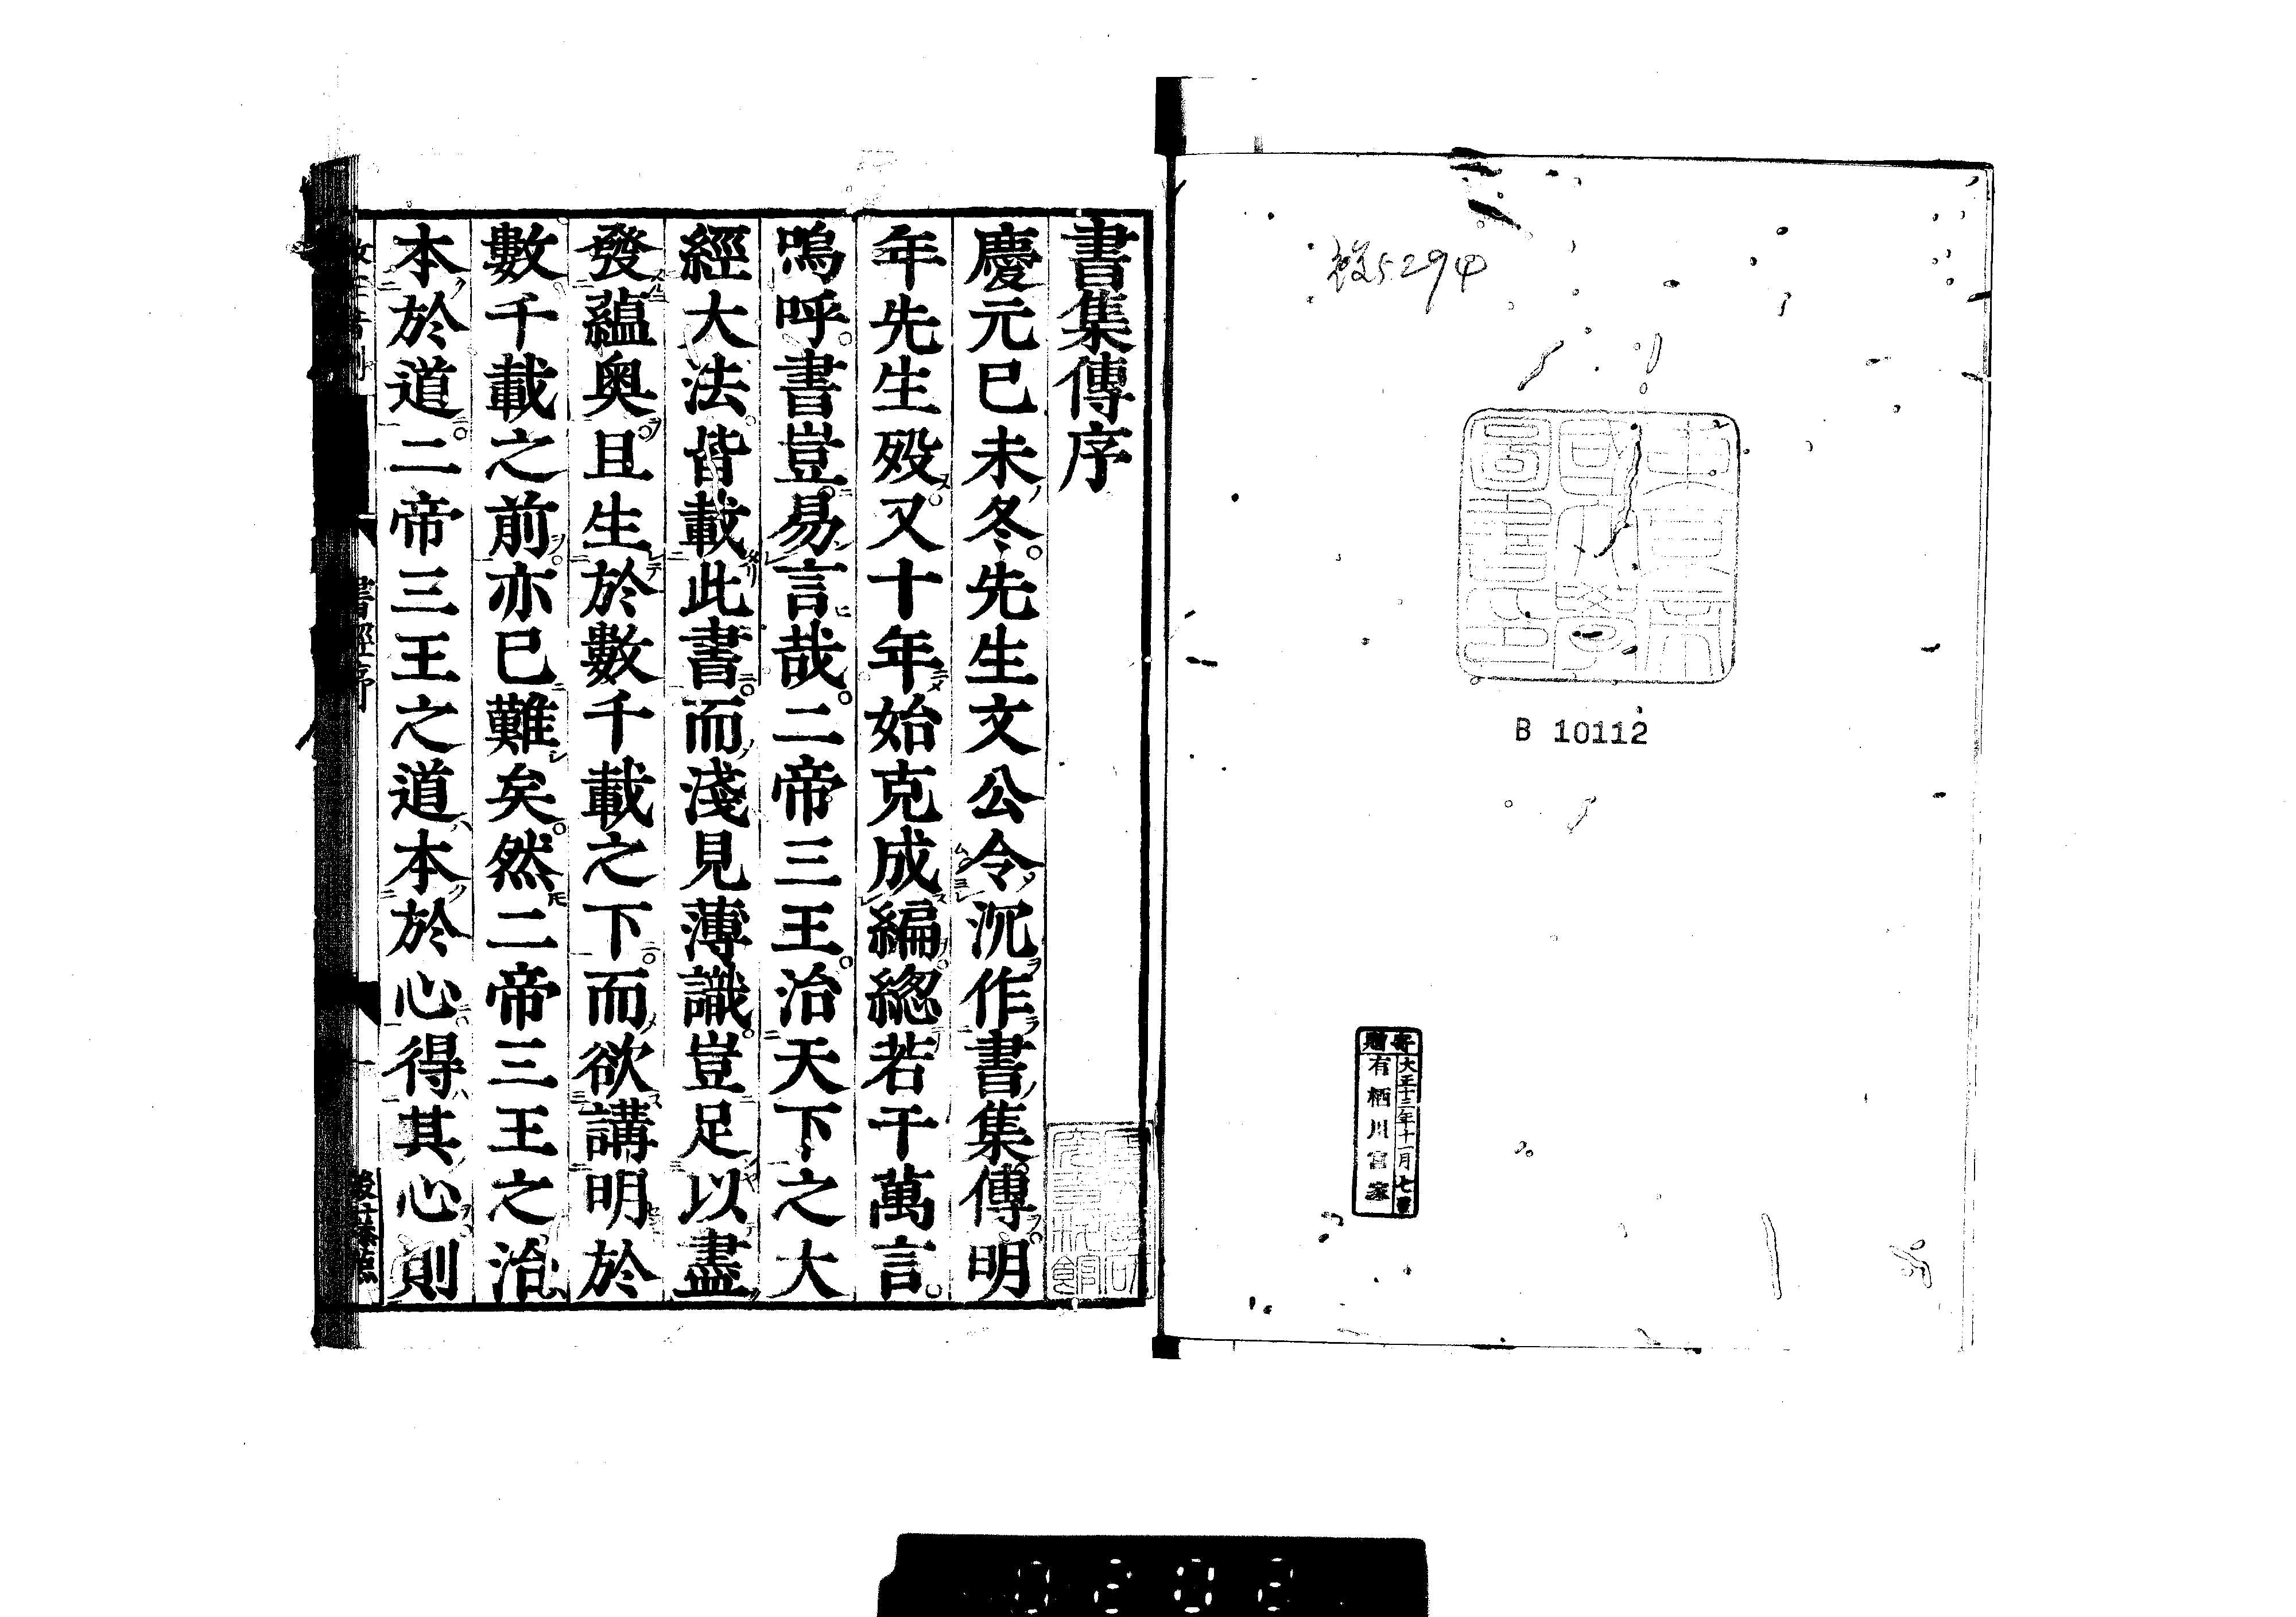 複5294
東京帝
國大學
圖書印
B 10112
寄贈
大正十三年十一月七日
有栖川宮家
書集傳序
慶元已未冬。先生文公令沉作書集傳明
年先生歿。又十年始克成編。緫若干萬言。
嗚呼。書豈易言哉。二帝三王。治天下之大
經大法。皆載此書。而淺見薄識。豈足以盡
發蘊奥。且生於數千載之下。而欲講明於
數千載之前。亦已難矣。然二帝三王之治。
本於道。二帝三王之道。本於心。得其心。則
書經序
一